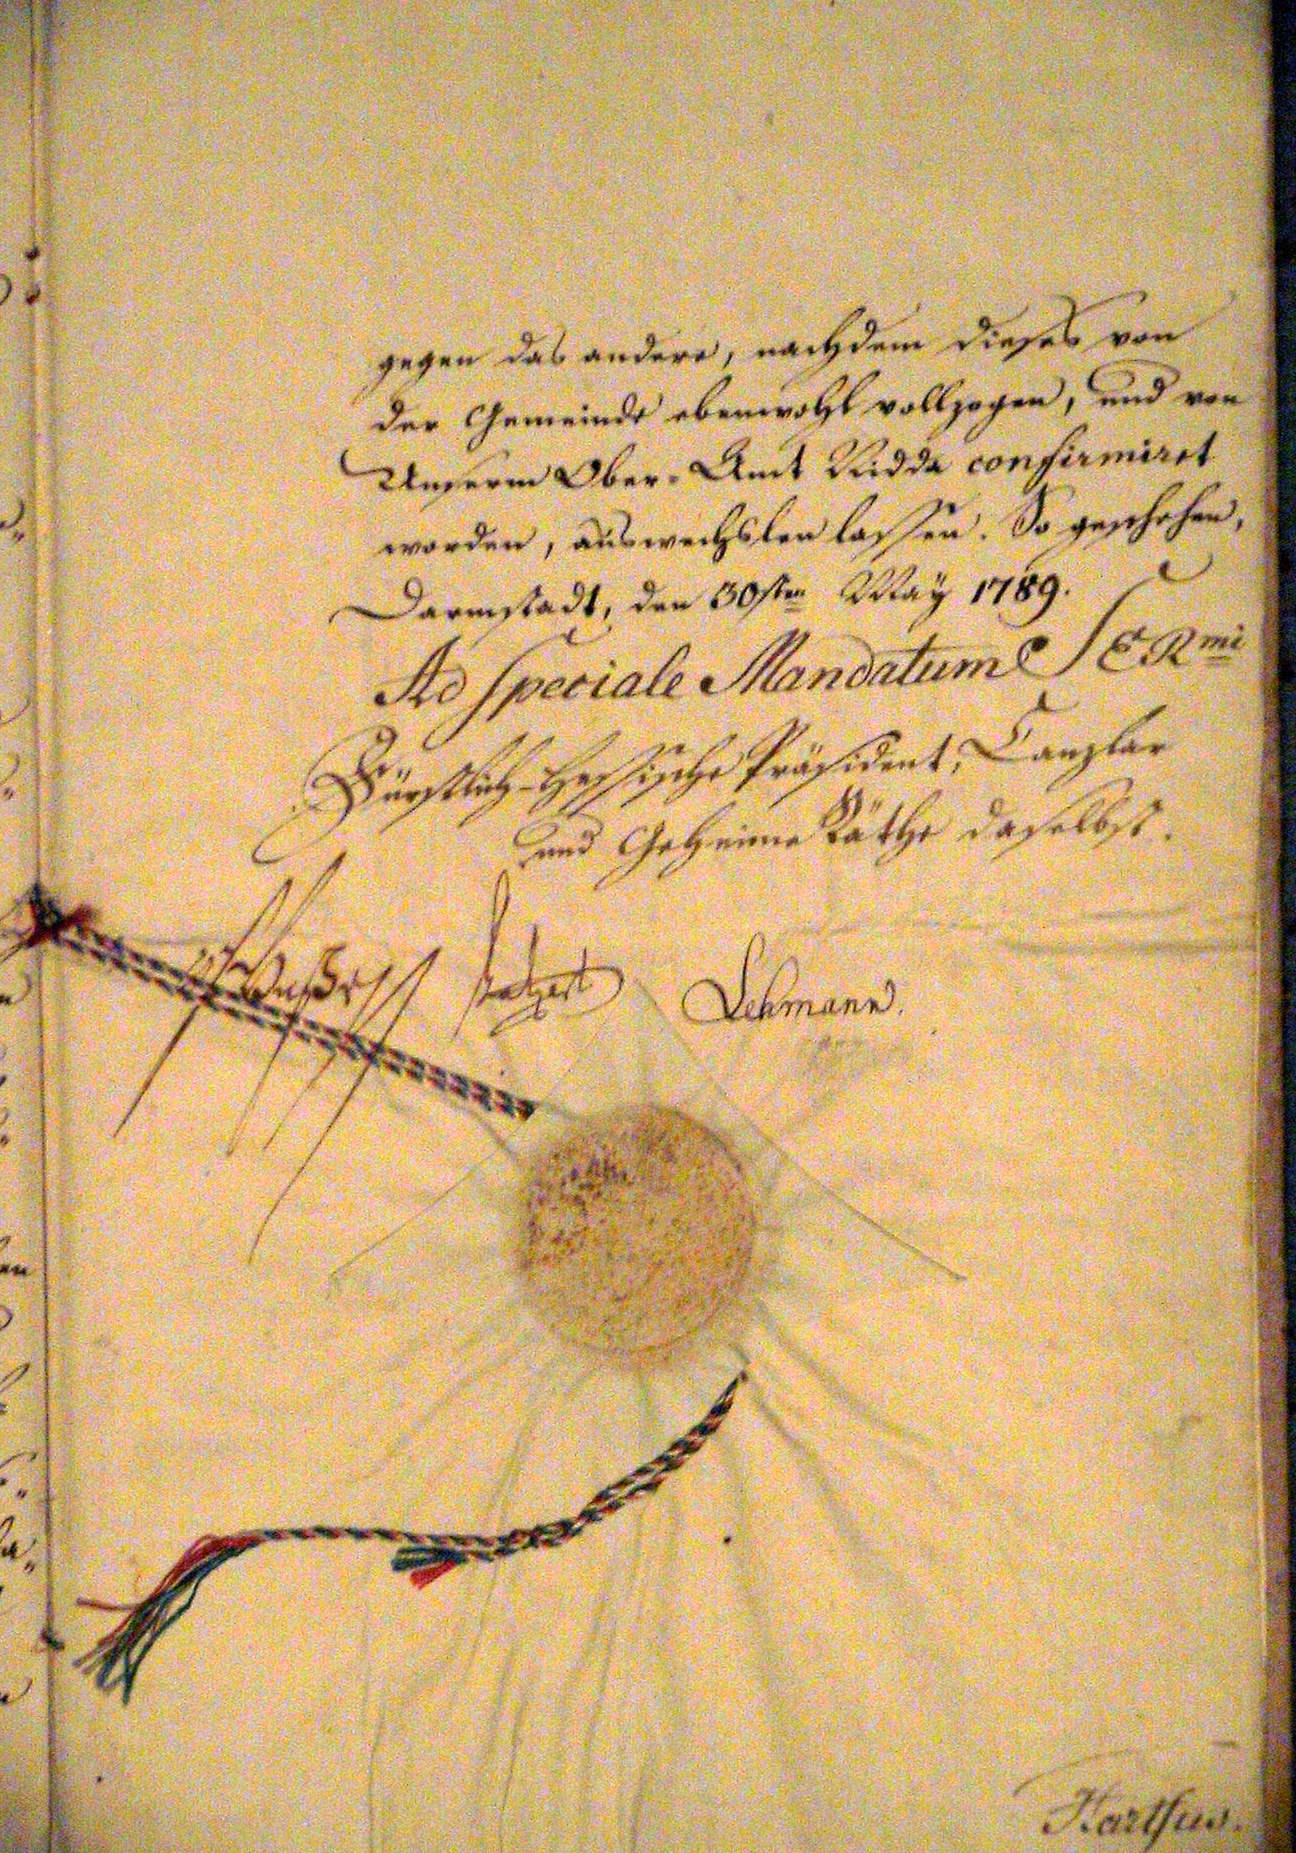 gegen das andere, nachdem dieses von
der Gemeinde ebenwohl vollzogen, und von
Unserm Ober-Amt Nidda confirmiret
worden, auswechslen lassen. So geschehen,
Darmstadt, den 30sten May 1789.
Ad Speciale Mandatum SERmi
Fürstlich-Hessische Präsident, Canzlar
und Geheime Räthe daselbst.
Lehmann.